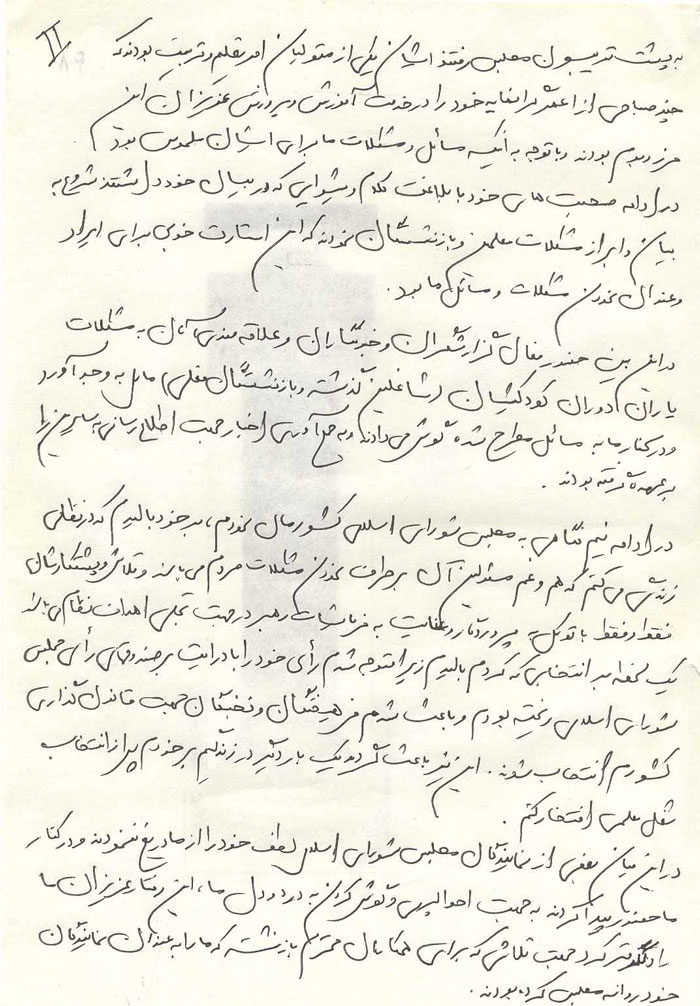 II
به پشت تریبون مجلس رفتند ایشان یکی از متولیان امر تعلیم و تربیت بودند که
چند صباحی از عمر گرانمایه خود را در خدمت آموزش و پرورش عزیزان این
مرز و بوم بودند و با توجه به اینکه مسائل و مشکلات ما برای ایشان ملموس بود
در ادامه صحبت های خود با بلاغت کلام و شیوایی که در بیان خود داشتند شروع به
بیان و ابراز مشکلات معلمین و بازنشستگان نمودند که این استارت خوبی برای ایراد
و عنوان نمودن مشکلات و مسائل ما بود.
در این بین حضور فعال گزارشگران و خبرنگاران و علاقه مندی آنان به مشکلات
یاران دوران کودکیشان (شاغلین گذشته و بازنشستگان فعلی) ما را به وجد آورد
و در کنار ما به مسائل مطرح شده گوش می دادند و به جمع آوری اخبار جهت اطلاع رسانی به سایرین را
بر عهده گرفته بودند.
در ادامه نیم نگاهی به مجلس شورای اسلامی کشورمان نمودم، بر خود بالیدم که در نظامی
زندگی می کنم که هم و غم مسئولین آن برطرف نمودن مشکلات مردم می باشد و تلاش و پشتکارشان
فقط و فقط با توکل بر پروردگار و عنایت به فرمایشات رهبر در جهت تجلی اهداف نظام می باشد
یک لحظه بر انتخابی که کردم بالیدم زیرا متوجه شدم رأی خود را با درایت بر صندوقهای رأی مجلس
شورای اسلامی ریخته بودم و باعث شدم فرهیختگان و نخبگان جهت قانون گذاری
کشورم انتخاب شوند. این نیز باعث گردید یک بار دیگر در زندگیم بر خودم پس از انتخاب
شغل معلمی افتخار کنم.
در این میان بعضی از نمایندگان مجلس شورای اسلامی لطف خود را از ما دریغ ننمودند و در کنار
ما حضور پیدا کردند به جهت احوالپرسی و گوش کردن به درد و دل ما، این رفتار عزیزان ما
را دلگرمتر کرد جهت تلاشی که برای همکاران محترم بازنشسته که ما را به عنوان نمایندگان
خود روانه مجلس کرده بودند.